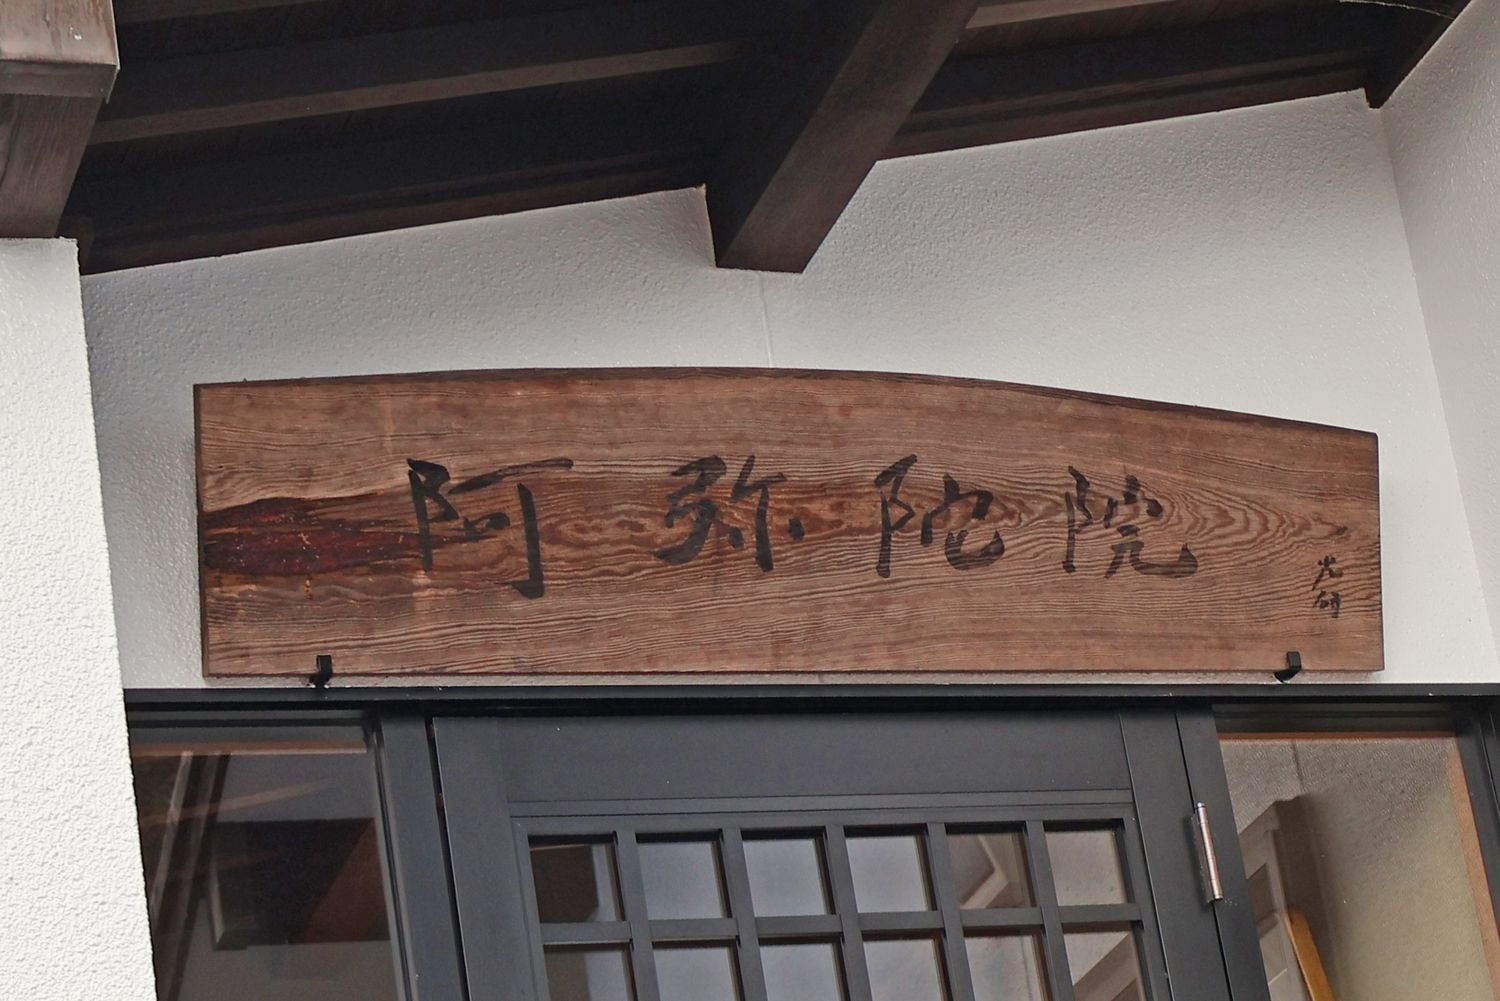 阿弥陀院
光研